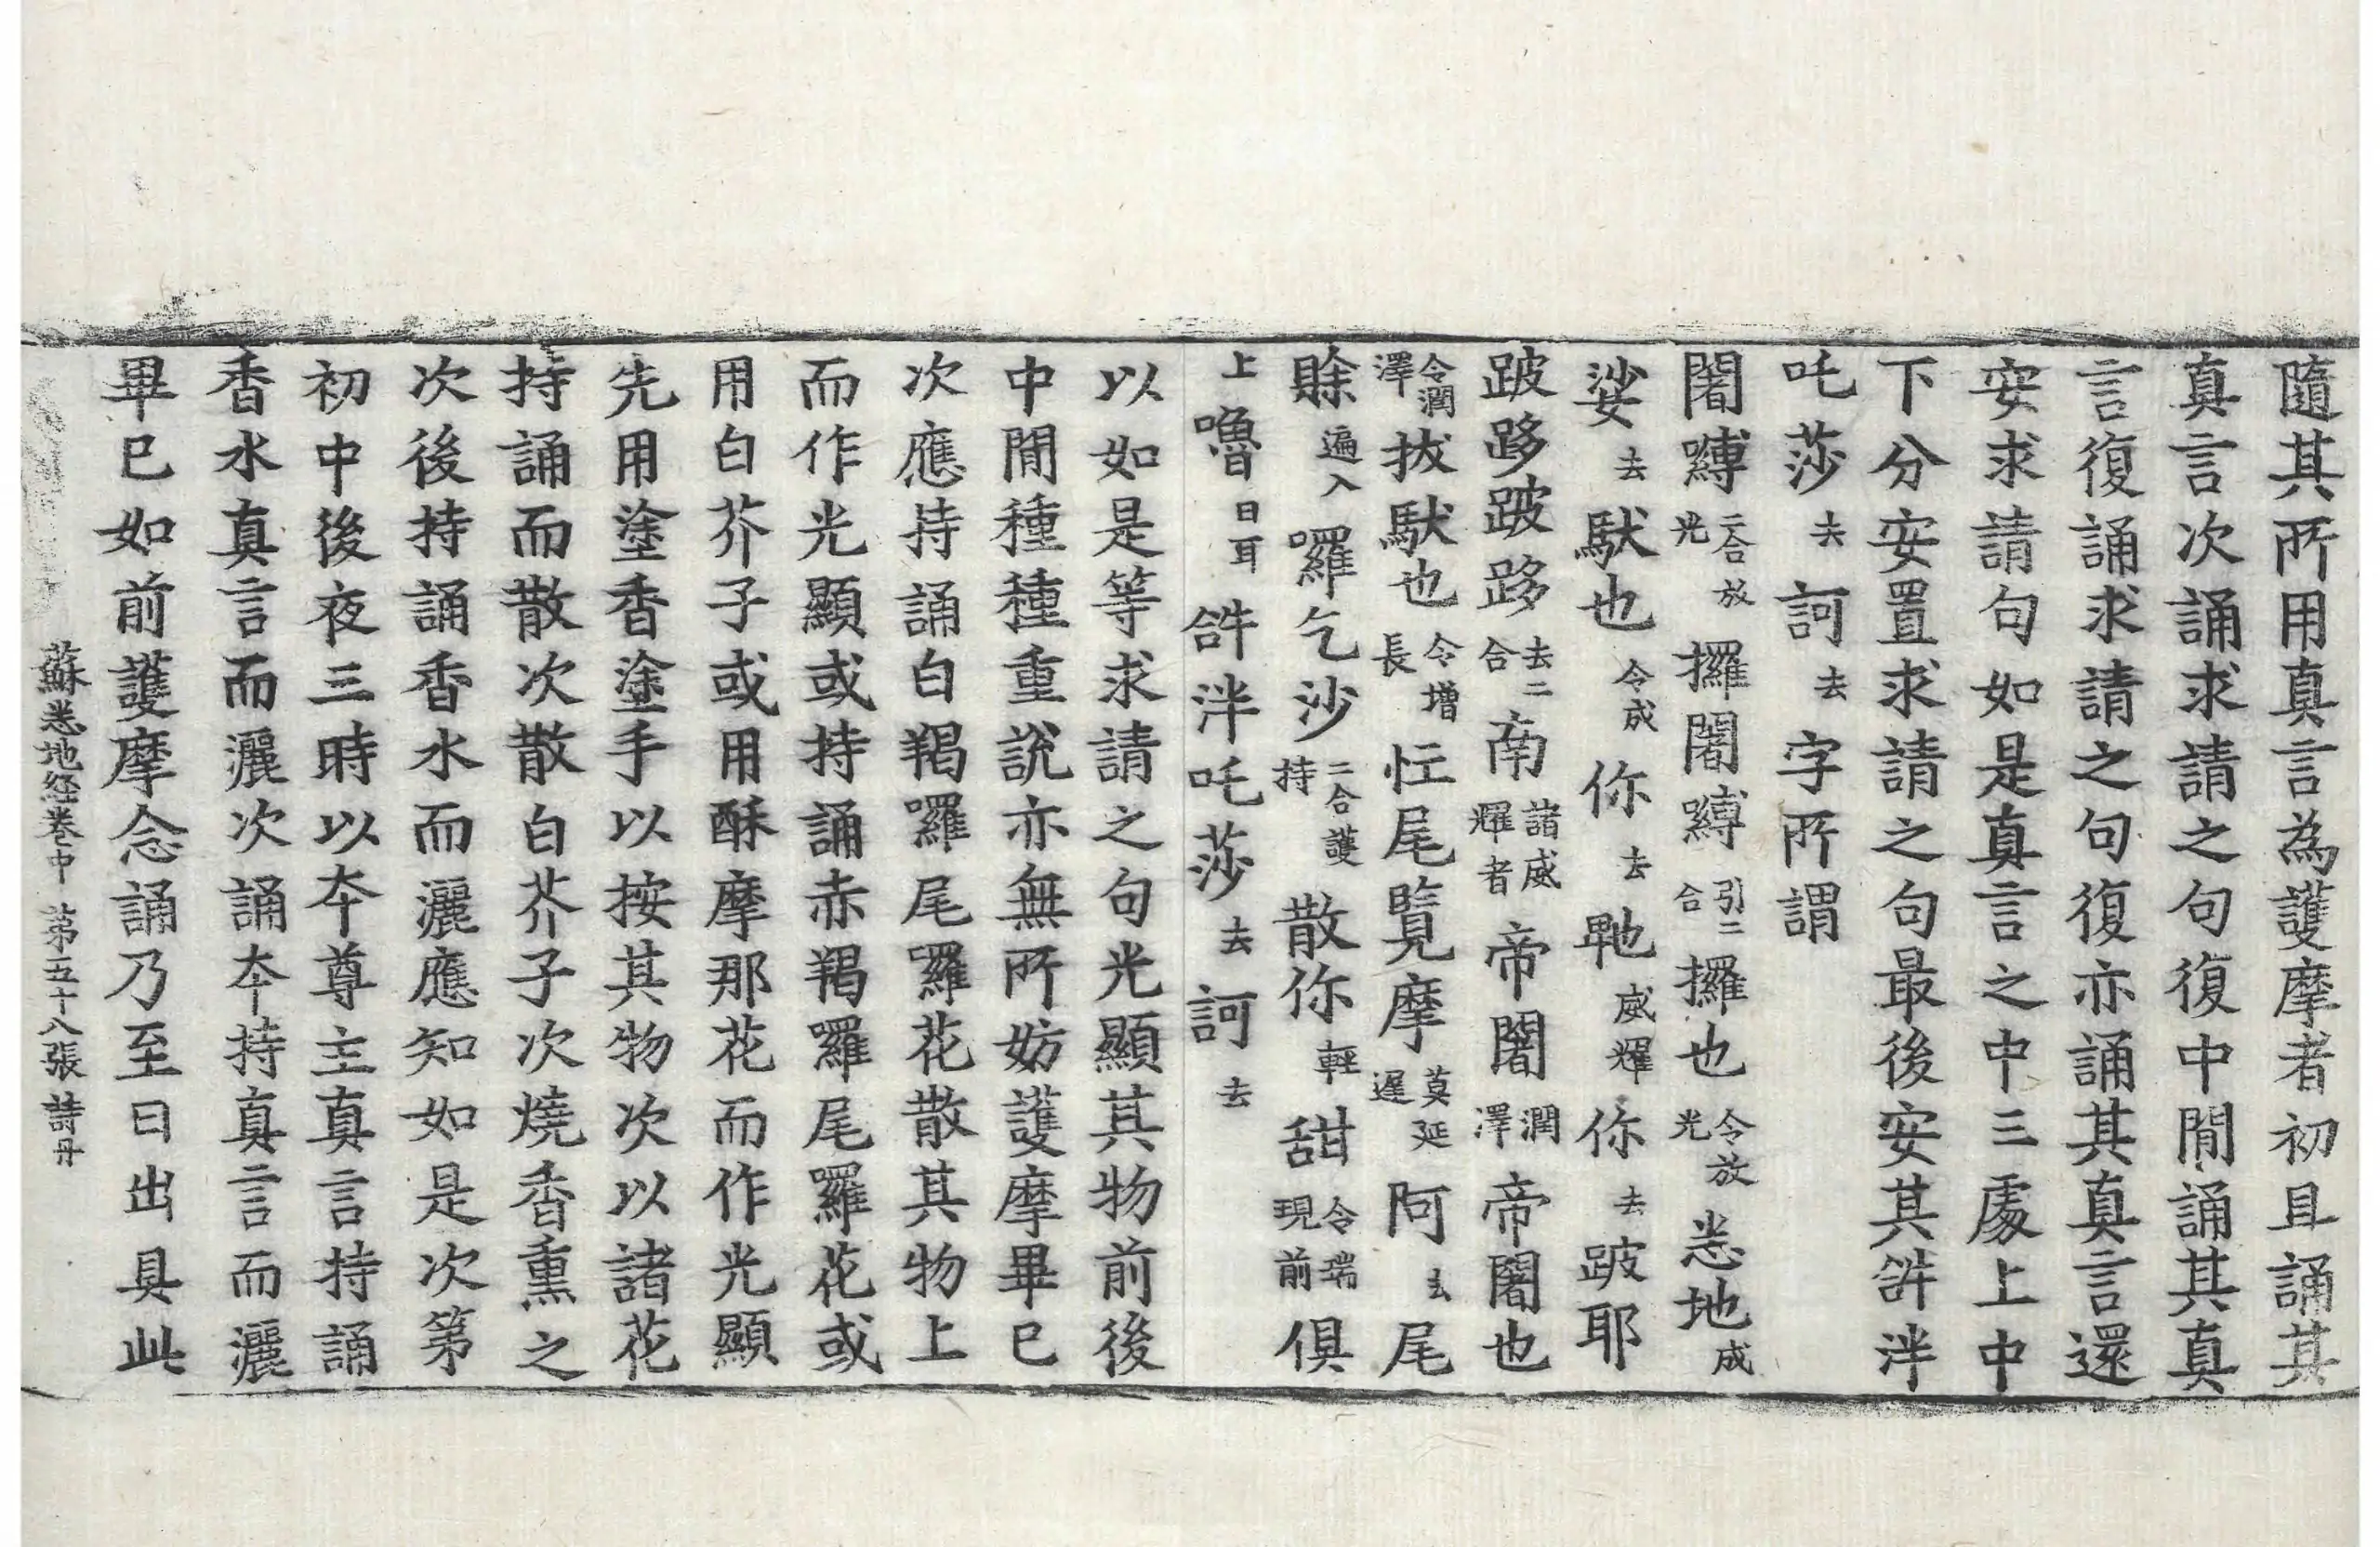 隨其所用真言為護摩者初且誦其
真言次誦求請之句復中閒誦其真
言復誦求請之句復亦誦其真言還
安求請句如是真言之中三處上中
下分安置求請之句最後安其𤙖泮
吒莎去訶去字所謂
闍嚩二合放光攞闍嚩引二合攞也令放光悉地成
娑去馱也令成你去䟦威輝你去跛耶
跛跢跛跢去二合南諸威輝者帝闍潤澤帝闍也
令潤澤拔馱也令增長怔尾覽摩莫延遲阿去尾
賖遍入囉乞沙二合護持散你輕甜令瑞現前俱
上嚕日耳𤙖泮吒莎去訶去
以如是等求請之句光顯其物前後
中閒種種重說亦無所妨護摩畢已
次應持誦白羯囉尾囉花散其物上
而作光顯或持誦赤羯囉尾囉花或
用白芥子或用酥摩那花而作光顯
先用塗香塗手以按其物次以諸花
持誦而散次散白芥子次燒香熏之
次後持誦香水而灑應知如是次第
初中後夜三時以本尊主真言持誦
香水真言而灑次誦本持真言而灑
畢已如前護摩念誦乃至日出具此
蘇悉地經卷中 第五十八張 詩丹